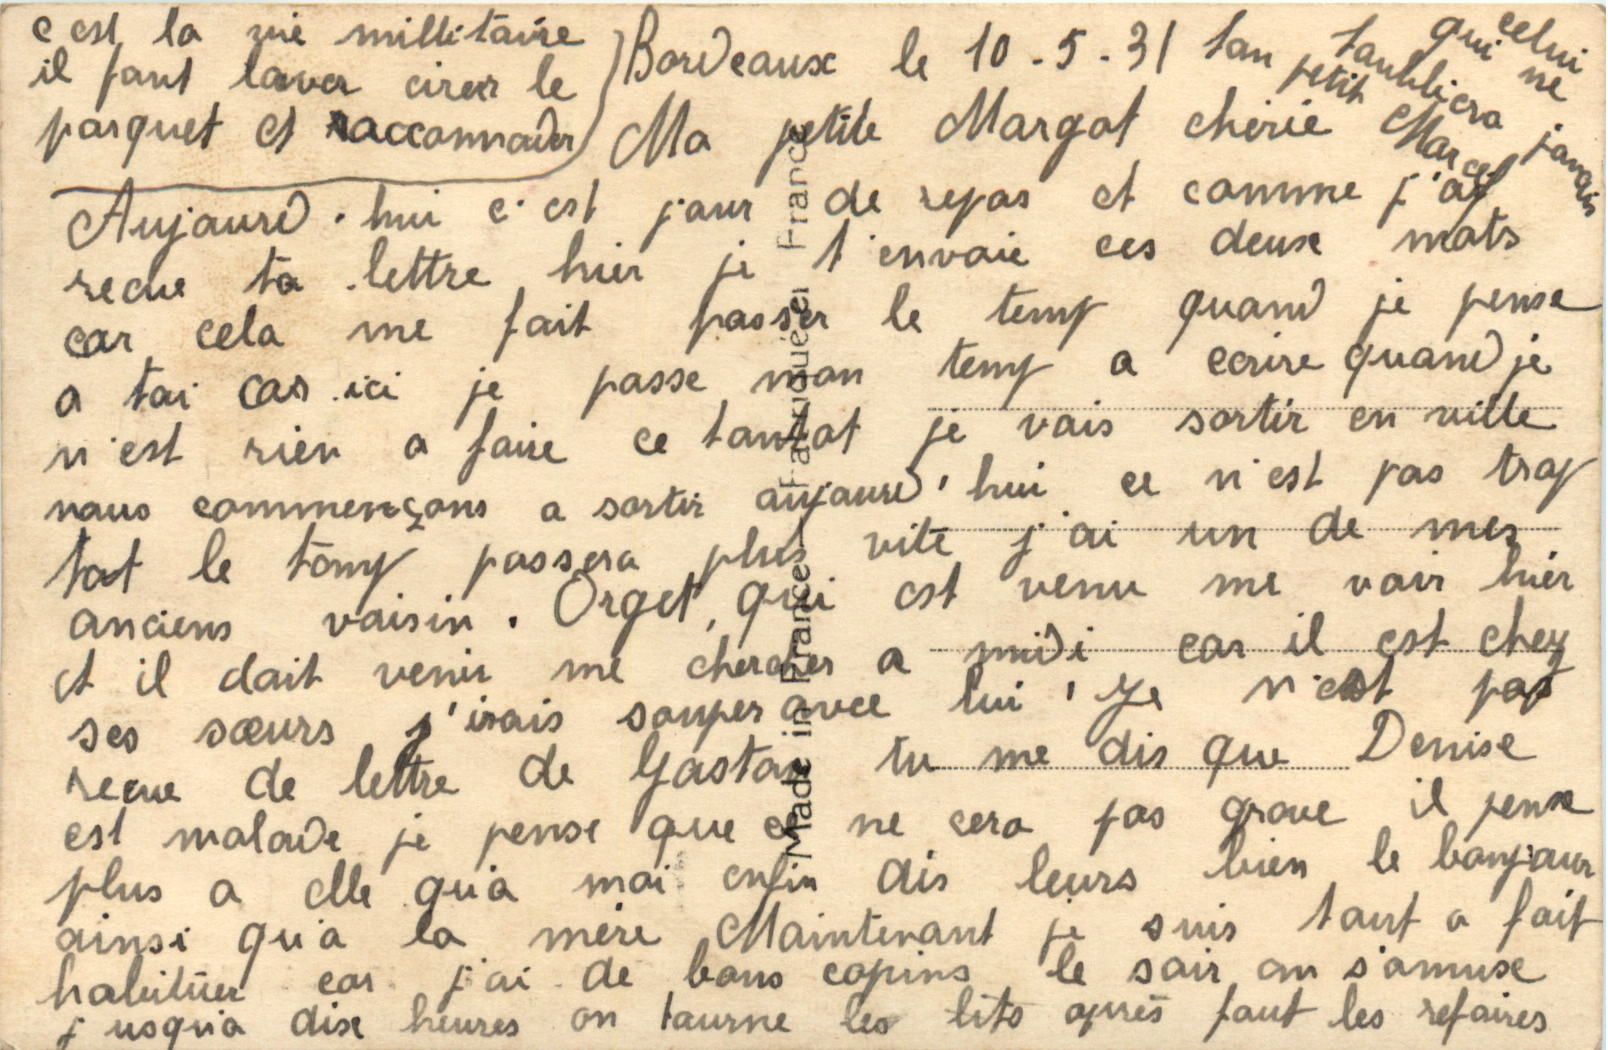 Bordeaux le 10-5-31
Ma petite Margot cherie
Aujourd'hui c'est jour de repos et comme j'ai
recue ta lettre hier je t'envoie ces deux mots
car cela me fait passer le temp quand je pense
a toi car ici je passe mon temp a ecrire quand je
n'est rien a faire ce tantot je vais sortir en ville
nous commençons a sortir aujourd'hui ce n'est pas trop
tot le temp passera plus vite j'ai un de mes
anciens voisin. Orget, qui est venu me voir hier
et il doit venir me chercher a midi car il est chez
ses sœurs j'irais souper avec lui Je n'est pas
recue de lettre de Gaston tu me dis que Denise
est malade je pense que ce ne cera pas grave il pense
plus a elle qu'a moi enfin dis leurs bien le bonjour
ainsi qu'a la mère Maintenant je suis tout a fait
habitüer car j'ai de bons copins le soir on s'amuse
jusqu'a dix heures on tourne les lits après faut les refaires
c'est la vie millitaire
il faut laver cirer le
parquet et raccomoder
ton petit Marcel
qui t'oubliera jamais
celui ne
Made in France - Fabriqué en France